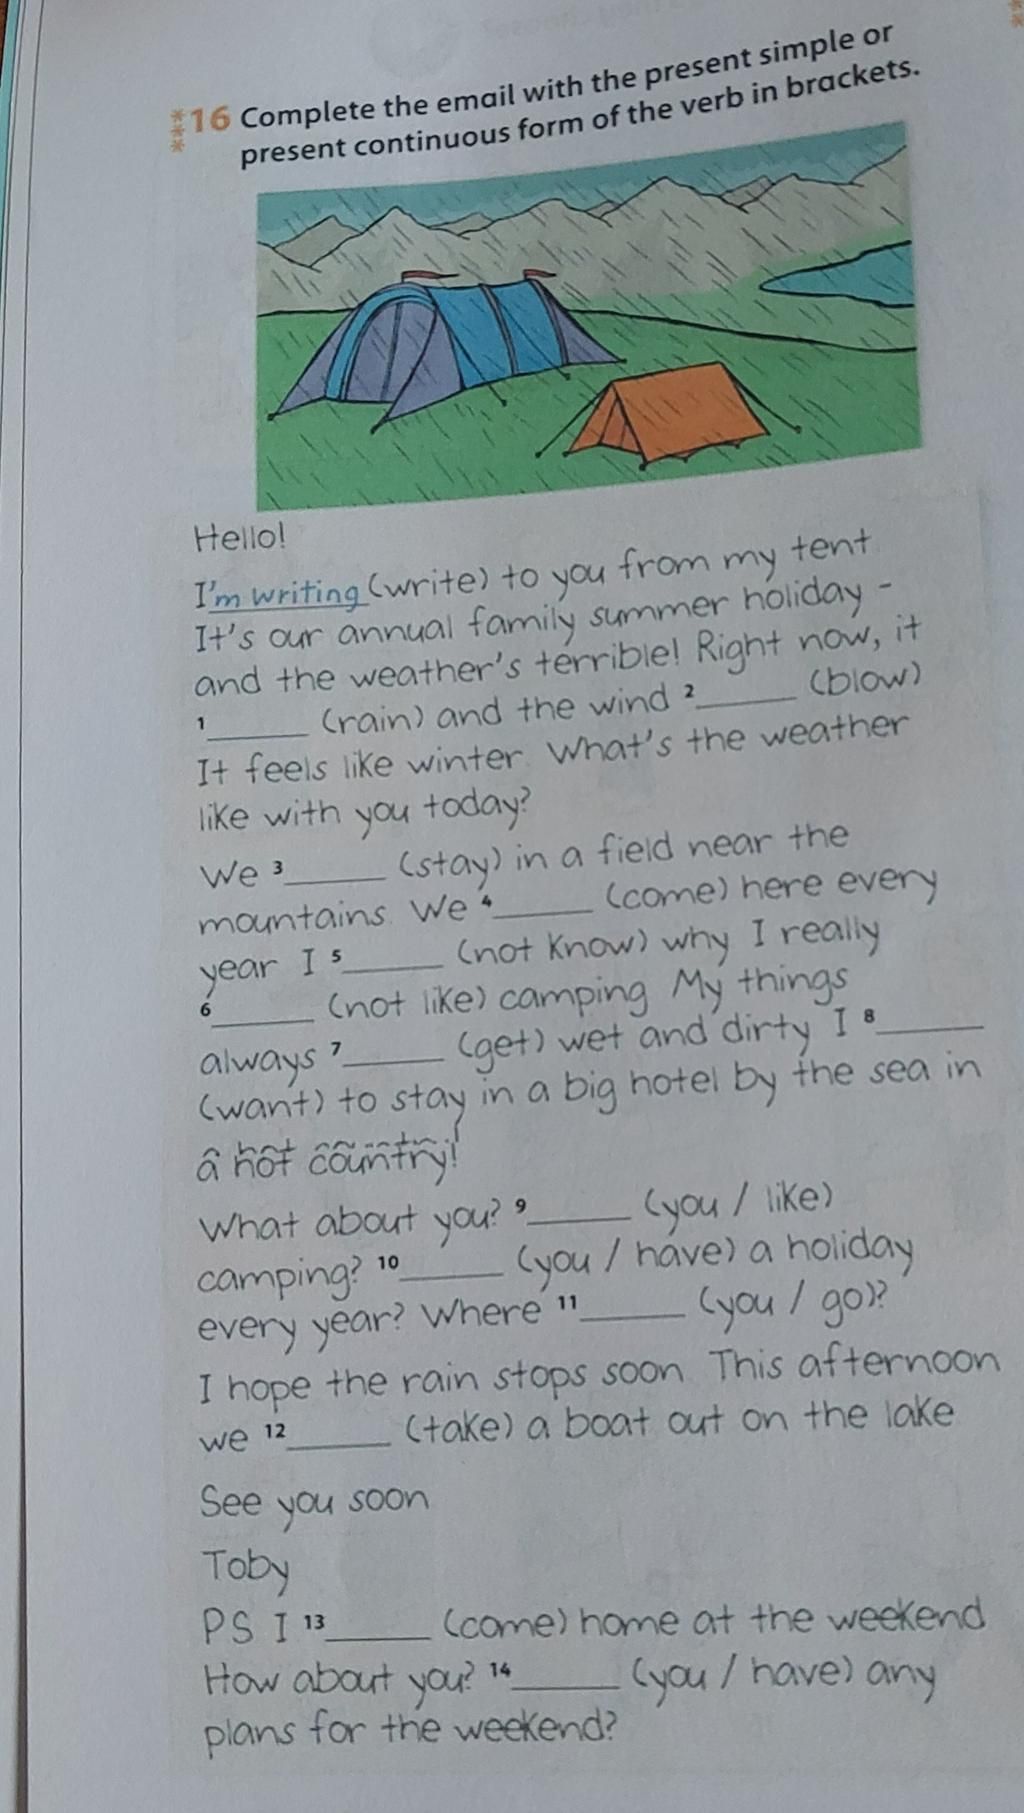 ***16 Complete the email with the present simple or
present continuous form of the verb in brackets.
Hello!
I'm writing (write) to you from my tent
It's our annual family summer holiday -
and the weather's terrible! Right now, it
1______ (rain) and the wind 2______ (blow)
It feels like winter. What's the weather
like with you today?
We 3______ (stay) in a field near the
mountains. We 4______ (come) here every
year I 5______ (not know) why I really
6______ (not like) camping. My things
always 7______ (get) wet and dirty I 8______
(want) to stay in a big hotel by the sea in
a hot country!
What about you? 9______ (you / like)
camping? 10______ (you / have) a holiday
every year? Where 11______ (you / go)?
I hope the rain stops soon This afternoon
we 12______ (take) a boat out on the lake
See you soon
Toby
PS I 13______ (come) home at the weekend
How about you? 14______ (you / have) any
plans for the weekend?